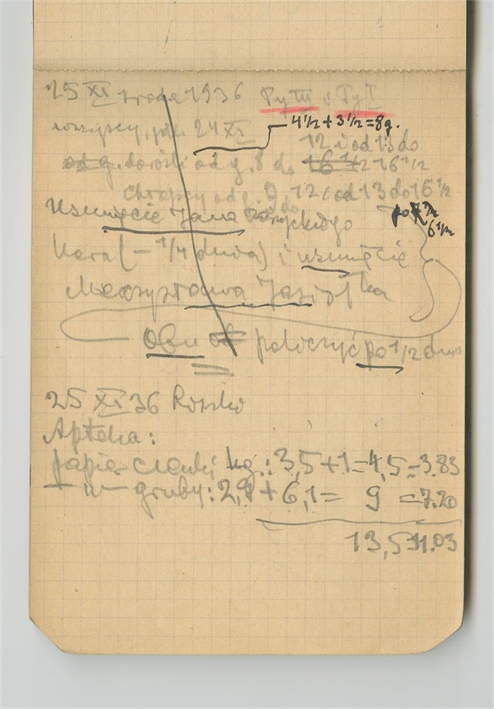 25 XI środa 1936 Pyt II i Pyt I
wszyscy, jak 24 XI 4 1/2 + 3 1/2 = 8 g.
12 i od 13 do
dorośli od g. 8 do 16 1/2 16 1/2
chłopcy od g. 9 do 12 i od 13 do 16 1/2
Usunięcie Jana
po 7 1/2
6 1/2
kara (- 1/4 dnia) i usunięcie
Mieczysława
Obu policzyć po 1/2 dnia
25 XI 36
Apteka:
papier cienki kg.: 3,5 + 1 = 4,5 = 3.83
— " — gruby: 2,9 + 6,1 = 9 = 7.20
13,5 11.03